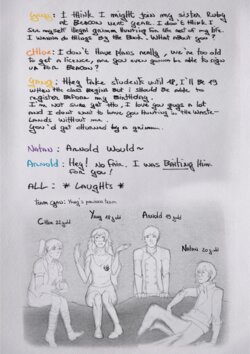 Yang: I think I might join my sister Ruby
at Beacon next year. I don't think I
see myself illegal grimm hunting for the rest of my life.
I wanna do things by the Book. What about you?
Chloe: I don't have plans really. We're too old
to get a licence, are you even gonna be able to sign
up for Beacon?
Yang: They take students until 18, I'll be 19
when the class begins but I should be able to
register before my Birthday.
I'm not sure yet tho, I love you guys a lot
and I don't want to have you hunting in the waste-
lands without me.
You'd get attacked by a grimm.
Natan: Arnold Would~
Arnold: Hey! No Fair. I was Baiting Him
For you!
ALL: * Laughs *
Team: Yang's previous team
Chloe 22 y old
Yang 18 y old
Arnold 19 y old
Natan 20 y old